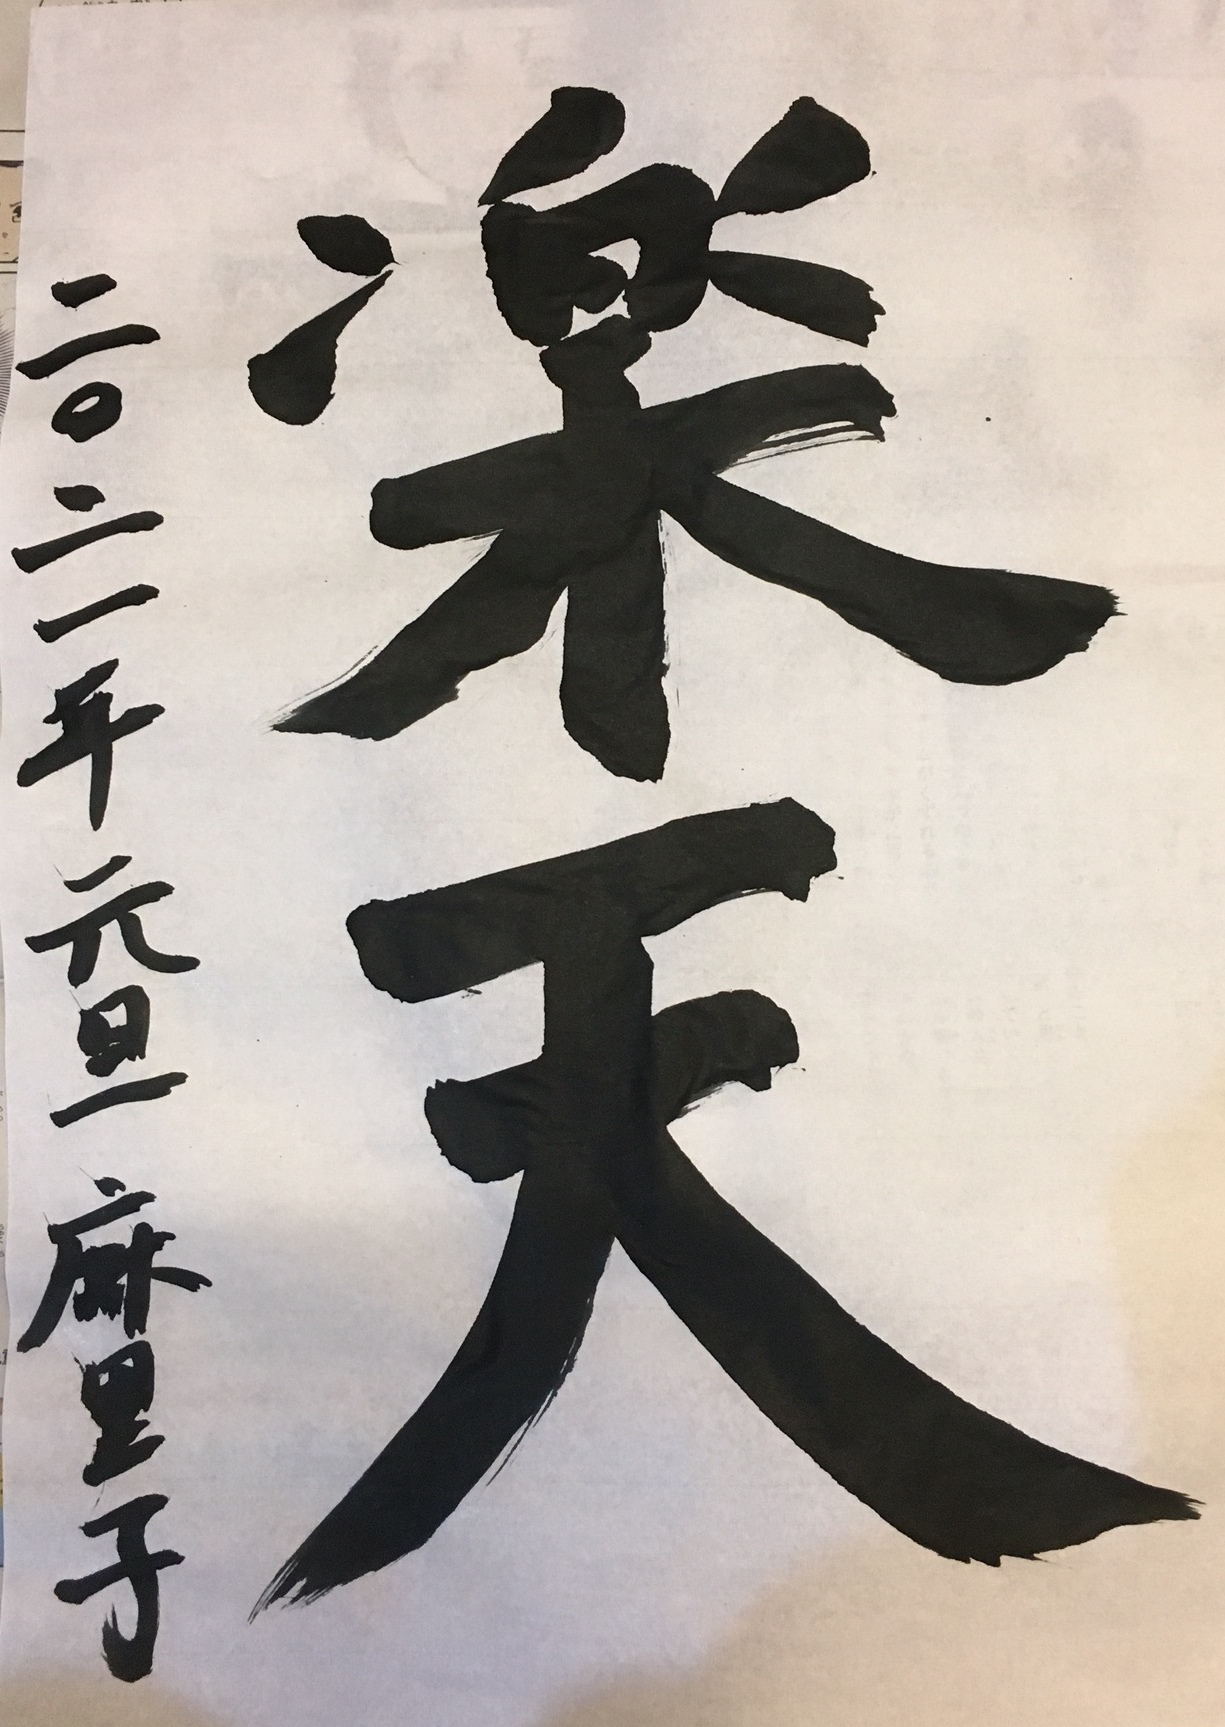 楽天
二〇二一年元旦 麻里子